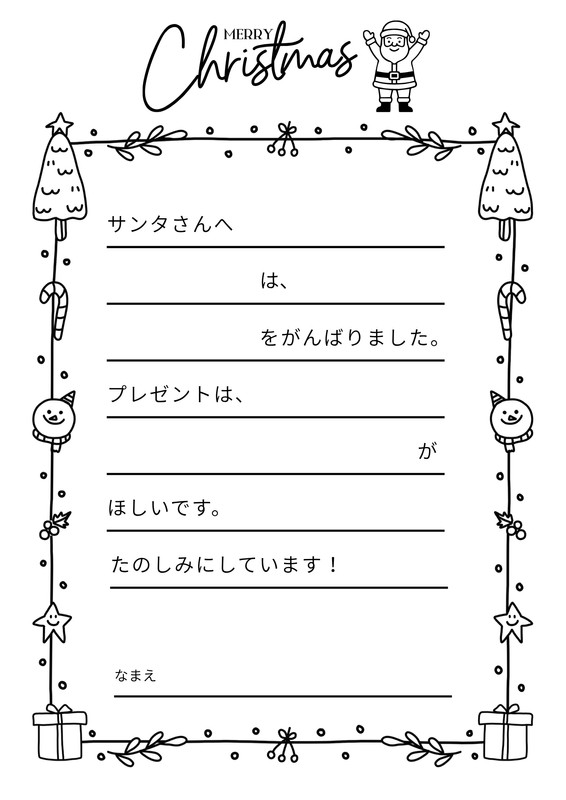 MERRY
Christmas
サンタさんへ
は、
をがんばりました。
プレゼントは、
が
ほしいです。
たのしみにしています！
なまえ